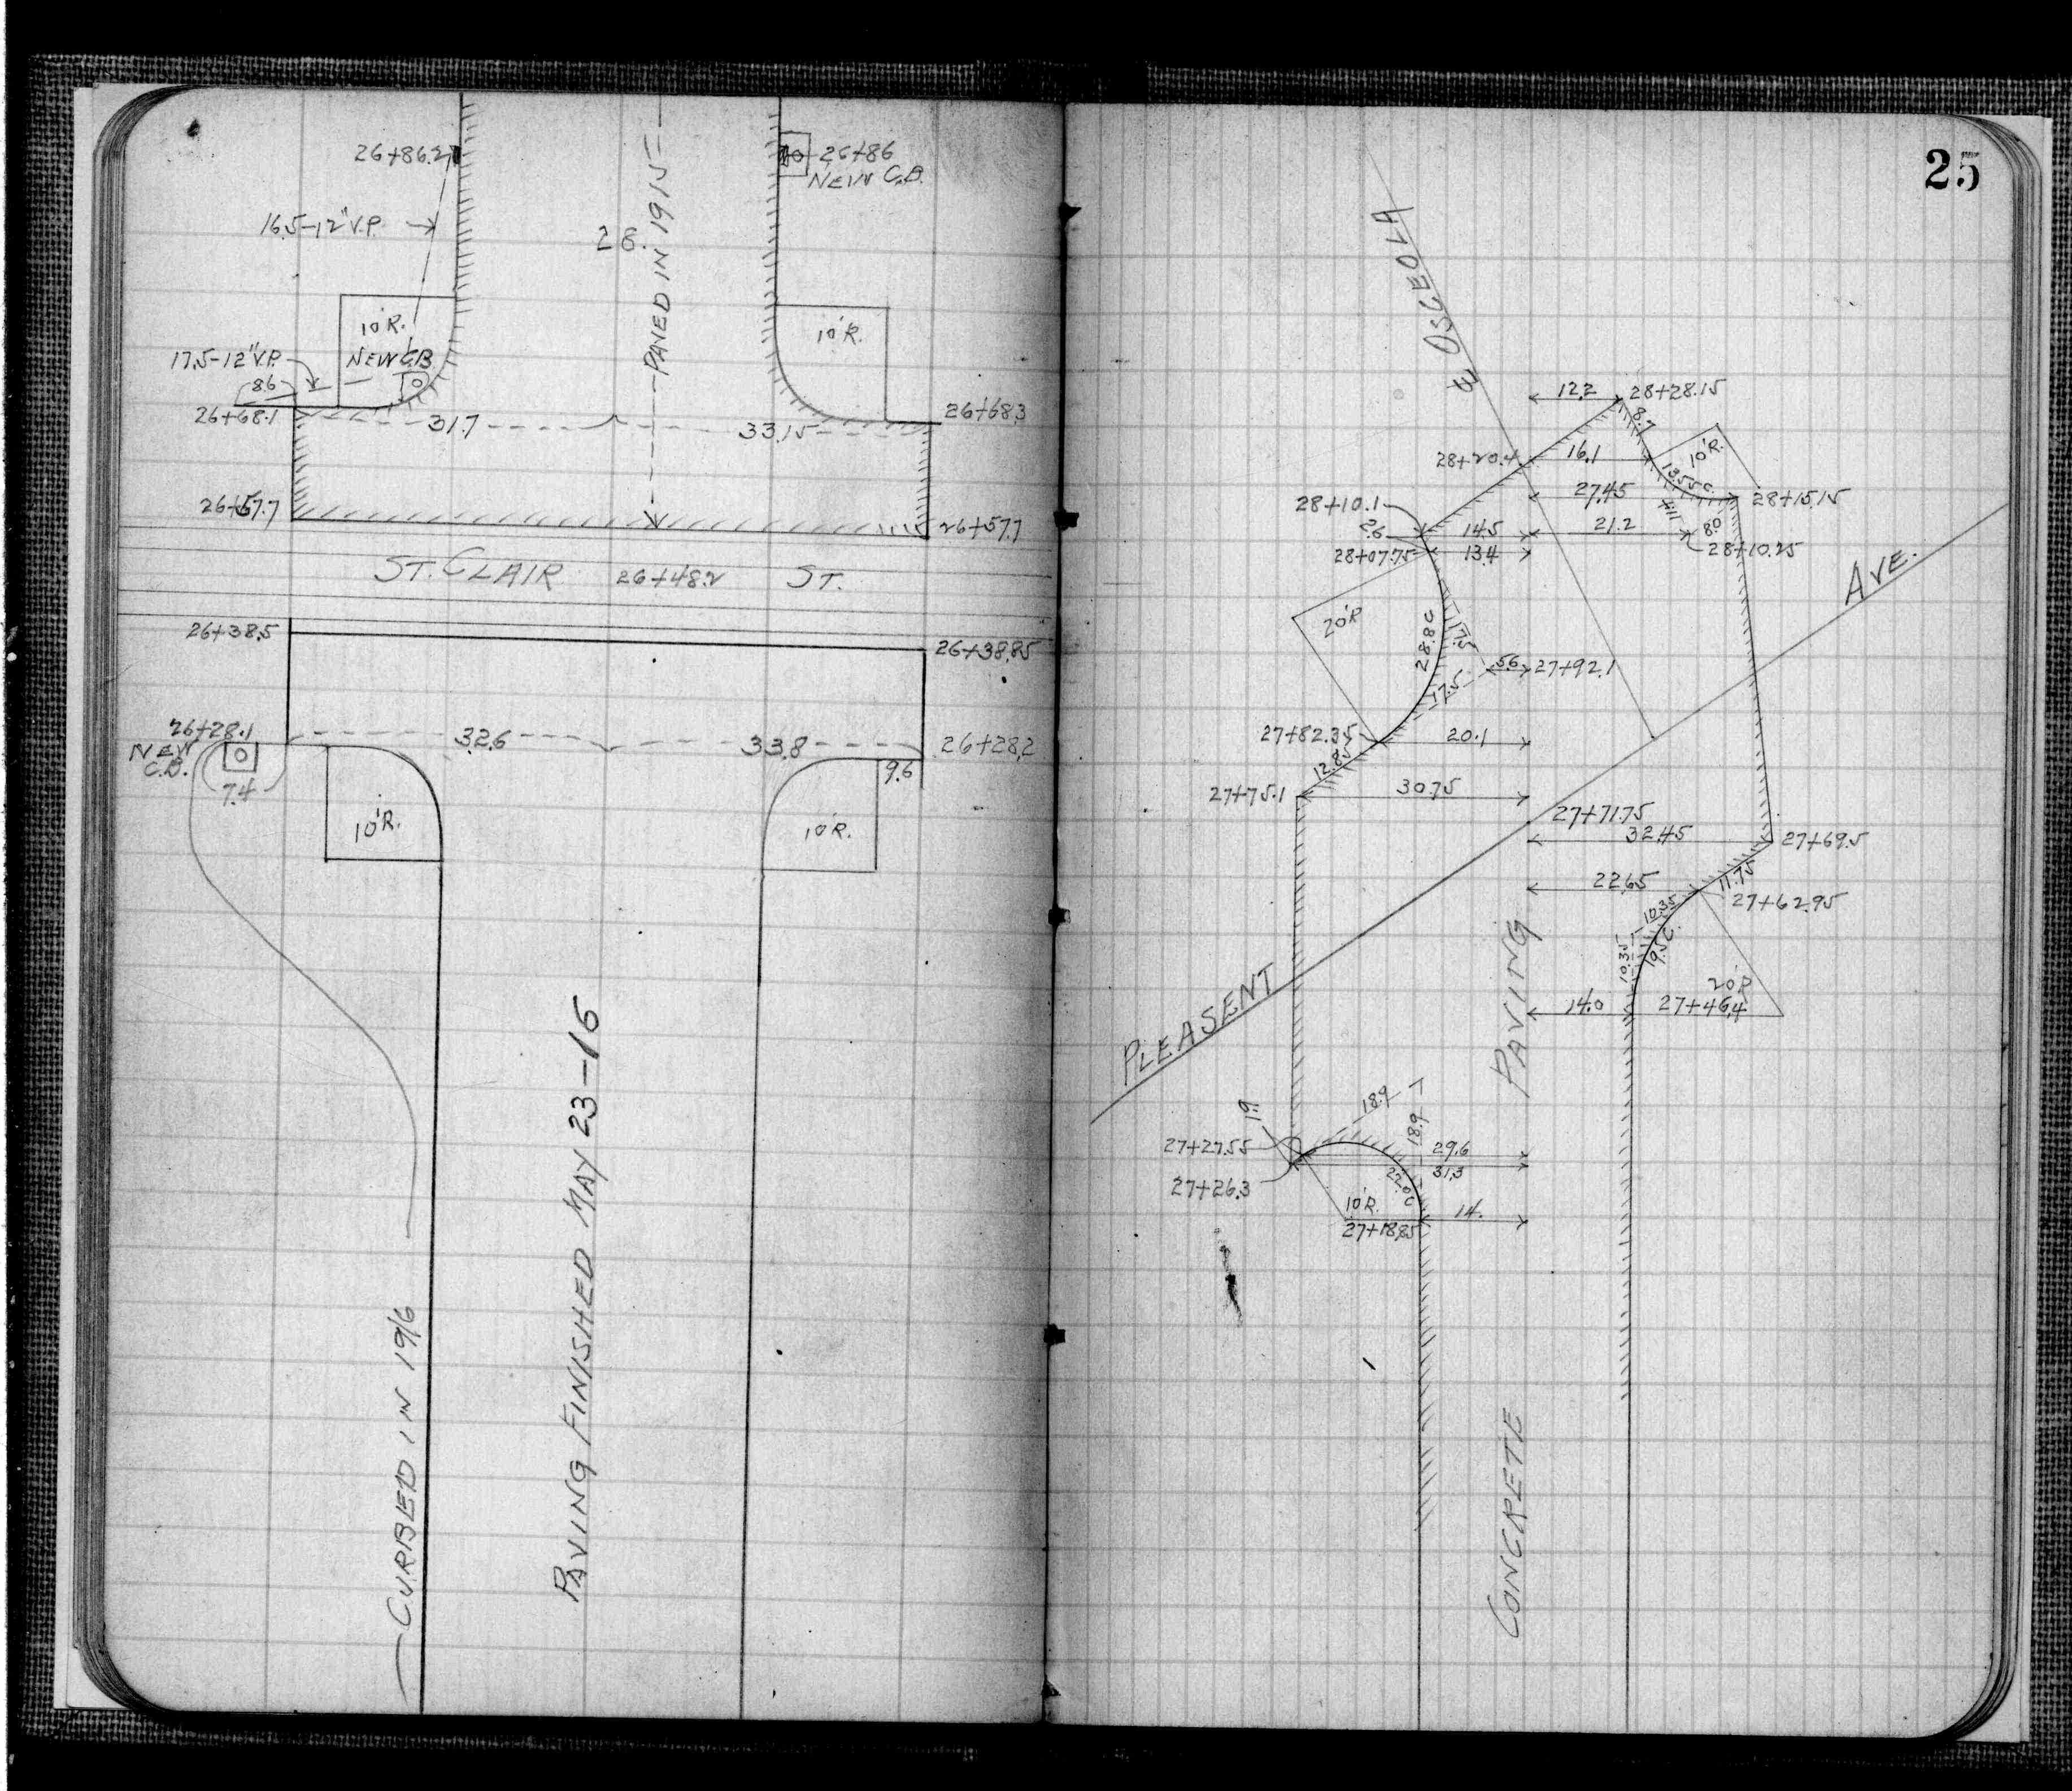 26+86.2
26+86
NEW C.B.
16.5-12"V.P.
28.
PAVED IN 1915
10'R.
NEW C.B.
10'R.
17.5-12"V.P.
8.6
26+68.1
31.7
33.15
26+68.3
26+57.7
26+57.7
ST. CLAIR 26+48.2 ST.
26+38.5
26+38.85
26+28.1
NEW
C.B.
7.4
32.6
33.8
26+28.2
9.6
10'R.
10'R.
CURBED IN 1916
PAVING FINISHED MAY 23-16
25
℄ OSCEOLA
12.2
28+28.15
8.7
28+20.4
16.1
10'R.
13.55 C.
27.45
28+15.15
28+10.1
2.6
14.5
21.2
8.0
28+10.25
28+07.75
13.4
AVE.
20'R
28.8C
17.5
17.5
5.6
27+92.1
27+82.35
20.1
12.85
27+75.1
30.75
27+71.75
32.45
27+69.5
22.65
11.75
27+62.95
10.35
10.35
19.5C.
20'R
14.0
27+46.4
PLEASENT
PAVING
18.9
18.9
1.9
27+27.55
29.6
31.3
27+26.3
22.0C
10'R.
14.
27+18.85
CONCRETE